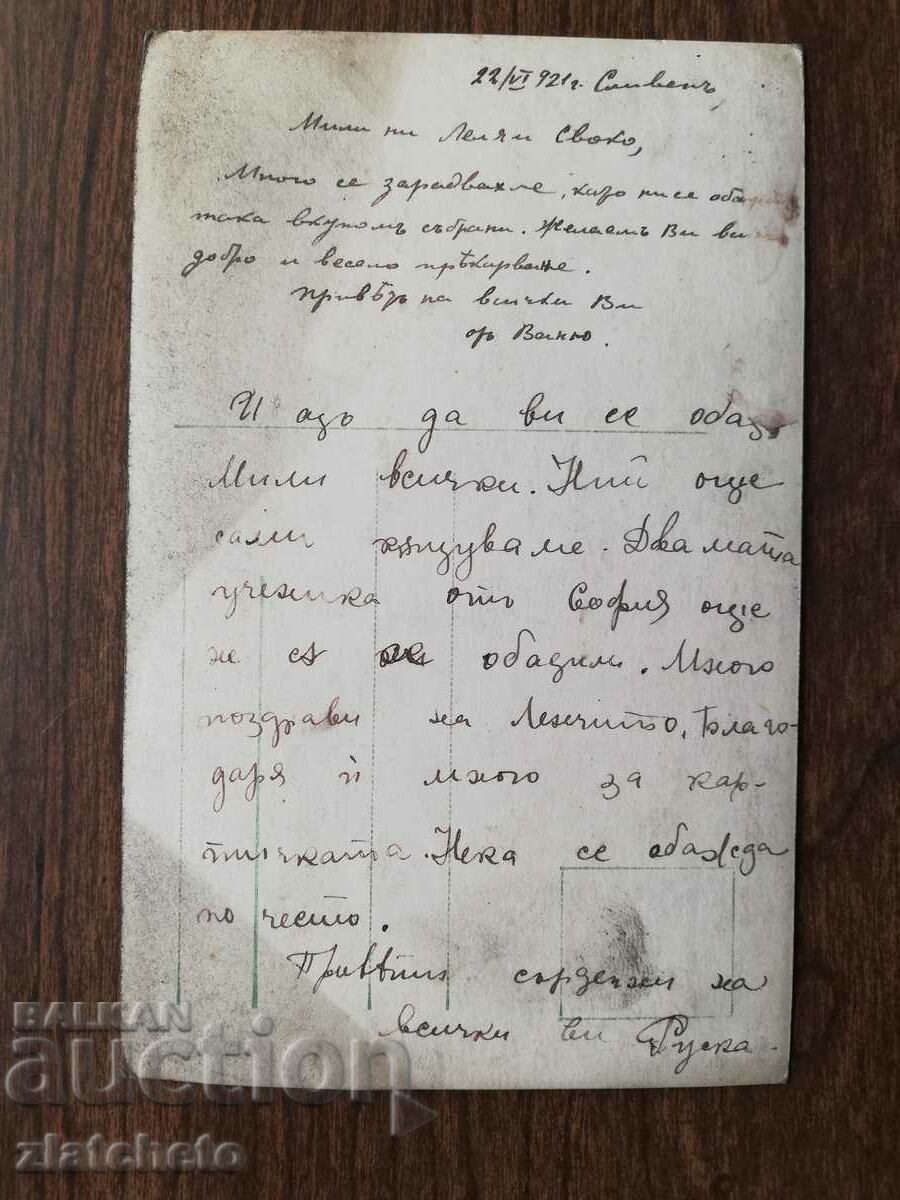 22/VI 921 г. Сливенъ,
Мили ни Леля и Своко,
Много се зарадвахме, като ни се
така вкупомъ събрани. Желаемъ Ви
добро и весело прѣкарване.
Привѣтъ на всички Ви
отъ Ваню.
И азъ да ви се обадя
Мили всички. Ний още
сами . Двамата
ученика отъ София още
не се обадили. Много
поздрави на Ленчито, Благо-
даря ѝ много за кар-
тичката. Нека се обажда
по често.
Привѣти сърдечни на
всички ви Руска.
BALKAN
auction
zlatcheto